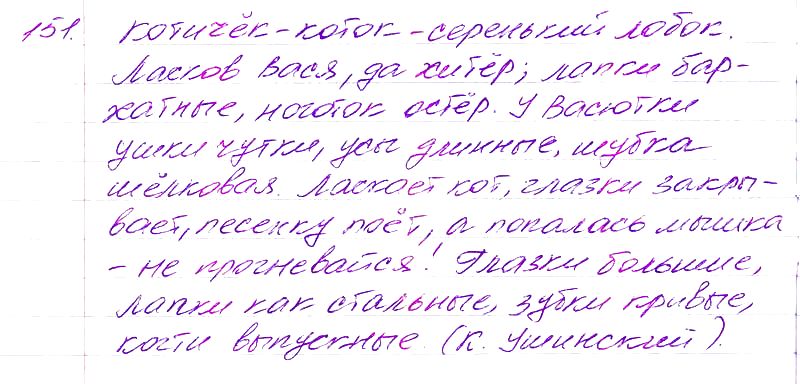 151. Котичёк-коток-серенький лобок.
Ласков Вася, да хитёр; лапки бар-
хатные, ноготок остёр. У Васютки
ушки чутки, усы длинные, шубка
шёлковая. Ласкает кот, глазки закры-
вает, песенку поёт, а попалась мышка
- не прогневайся! Глазки большие,
лапки как стальные, зубки кривые,
когти выпускные. (К. Ушинский).